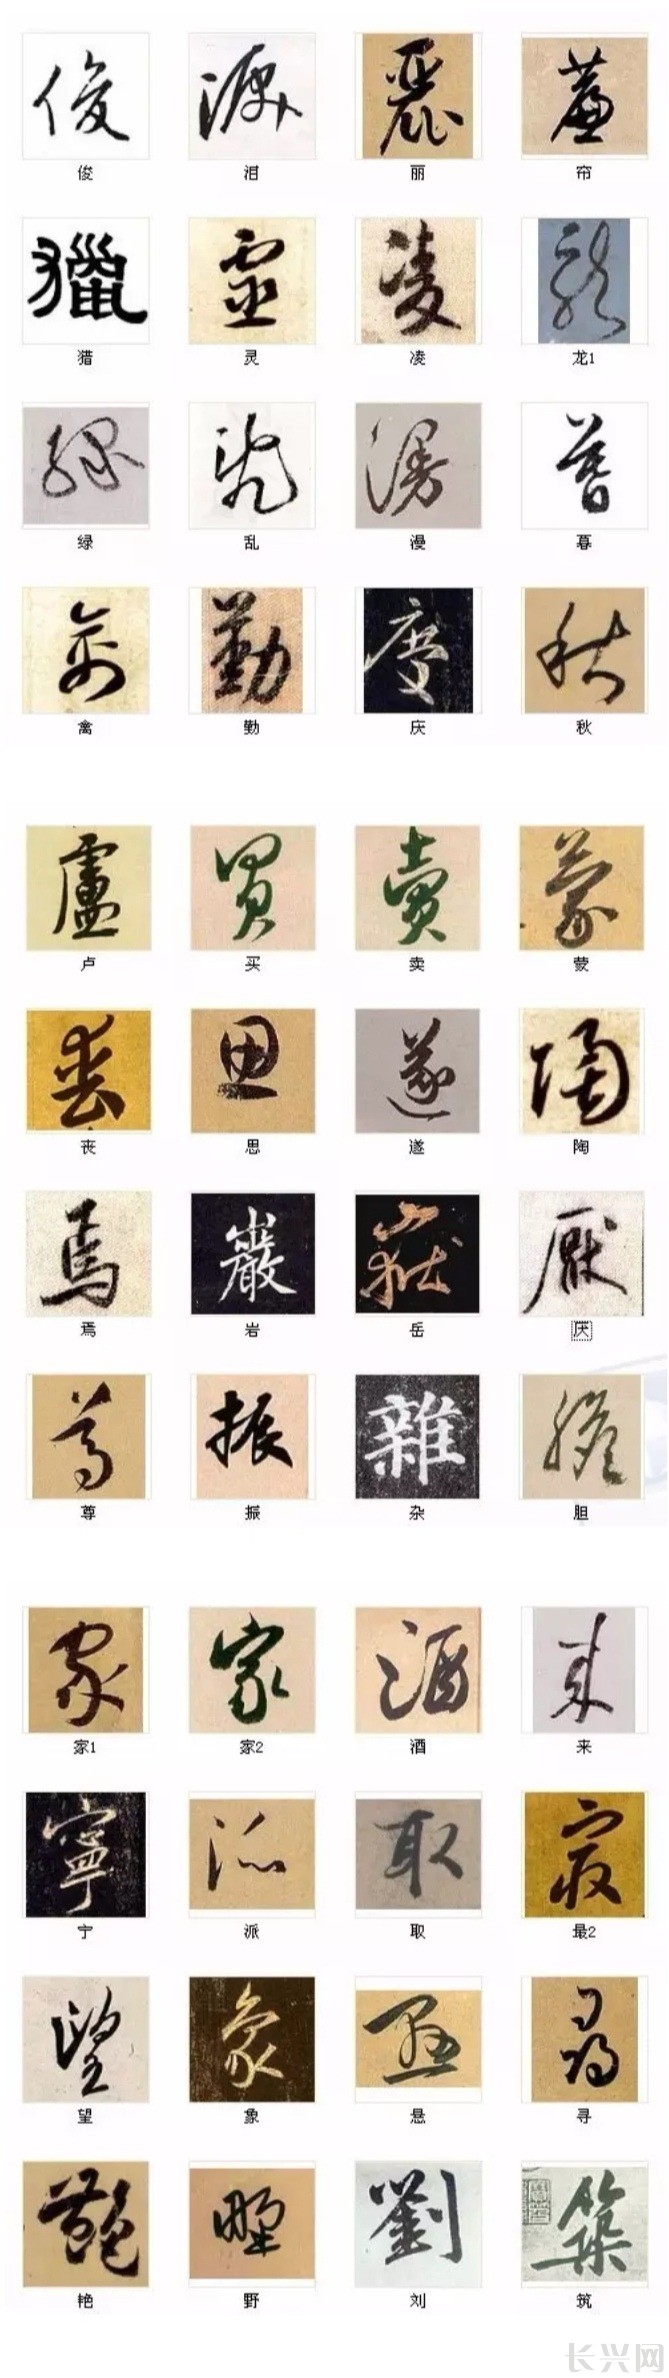 俊 泪 丽 帘
猎 灵 凌 龙1
绿 乱 漫 暮
禽 勤 庆 秋
卢 买 卖 蒙
丧 思 遂 陶
焉 岩 岳 厌
尊 振 杂 胆
家1 家2 酒 来
宁 派 取 最2
望 象 悬 寻
艳 野 刘 筑
长兴网